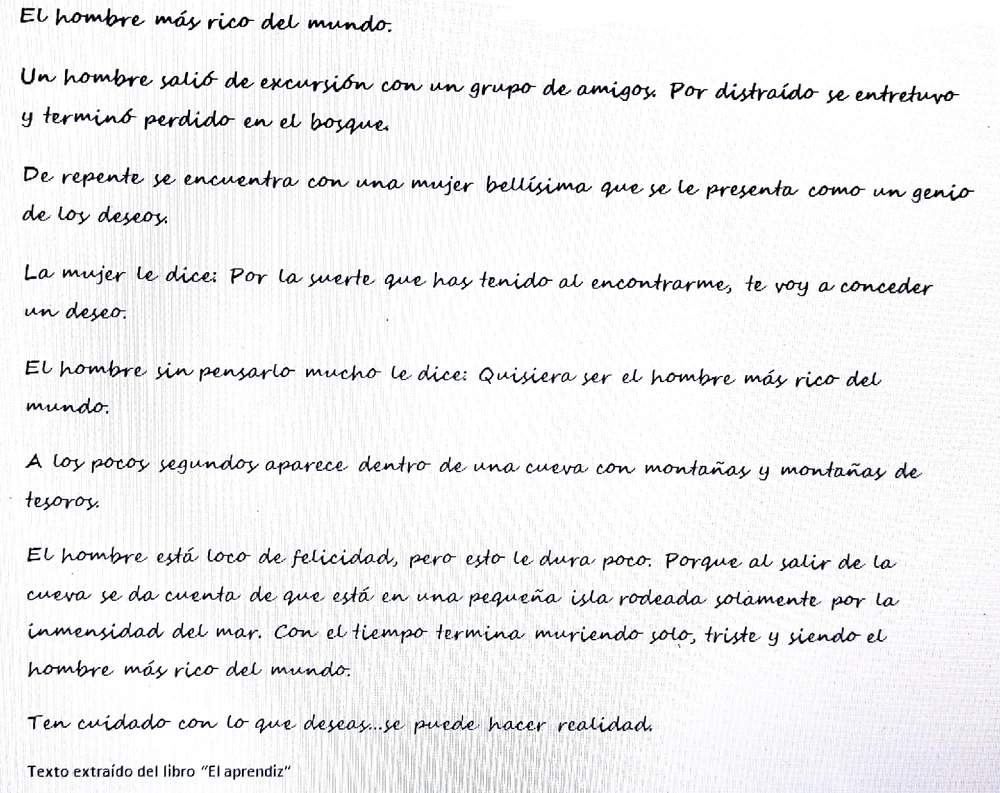 El hombre más rico del mundo.
Un hombre salió de excursión con un grupo de amigos. Por distraído se entretuvo
y terminó perdido en el bosque.
De repente se encuentra con una mujer bellísima que se le presenta como un genio
de los deseos.
La mujer le dice: Por la suerte que has tenido al encontrarme, te voy a conceder
un deseo.
El hombre sin pensarlo mucho le dice: Quisiera ser el hombre más rico del
mundo.
A los pocos segundos aparece dentro de una cueva con montañas y montañas de
tesoros.
El hombre está loco de felicidad, pero esto le dura poco. Porque al salir de la
cueva se da cuenta de que está en una pequeña isla rodeada solamente por la
inmensidad del mar. Con el tiempo termina muriendo solo, triste y siendo el
hombre más rico del mundo.
Ten cuidado con lo que deseas...se puede hacer realidad.
Texto extraído del libro "El aprendiz"